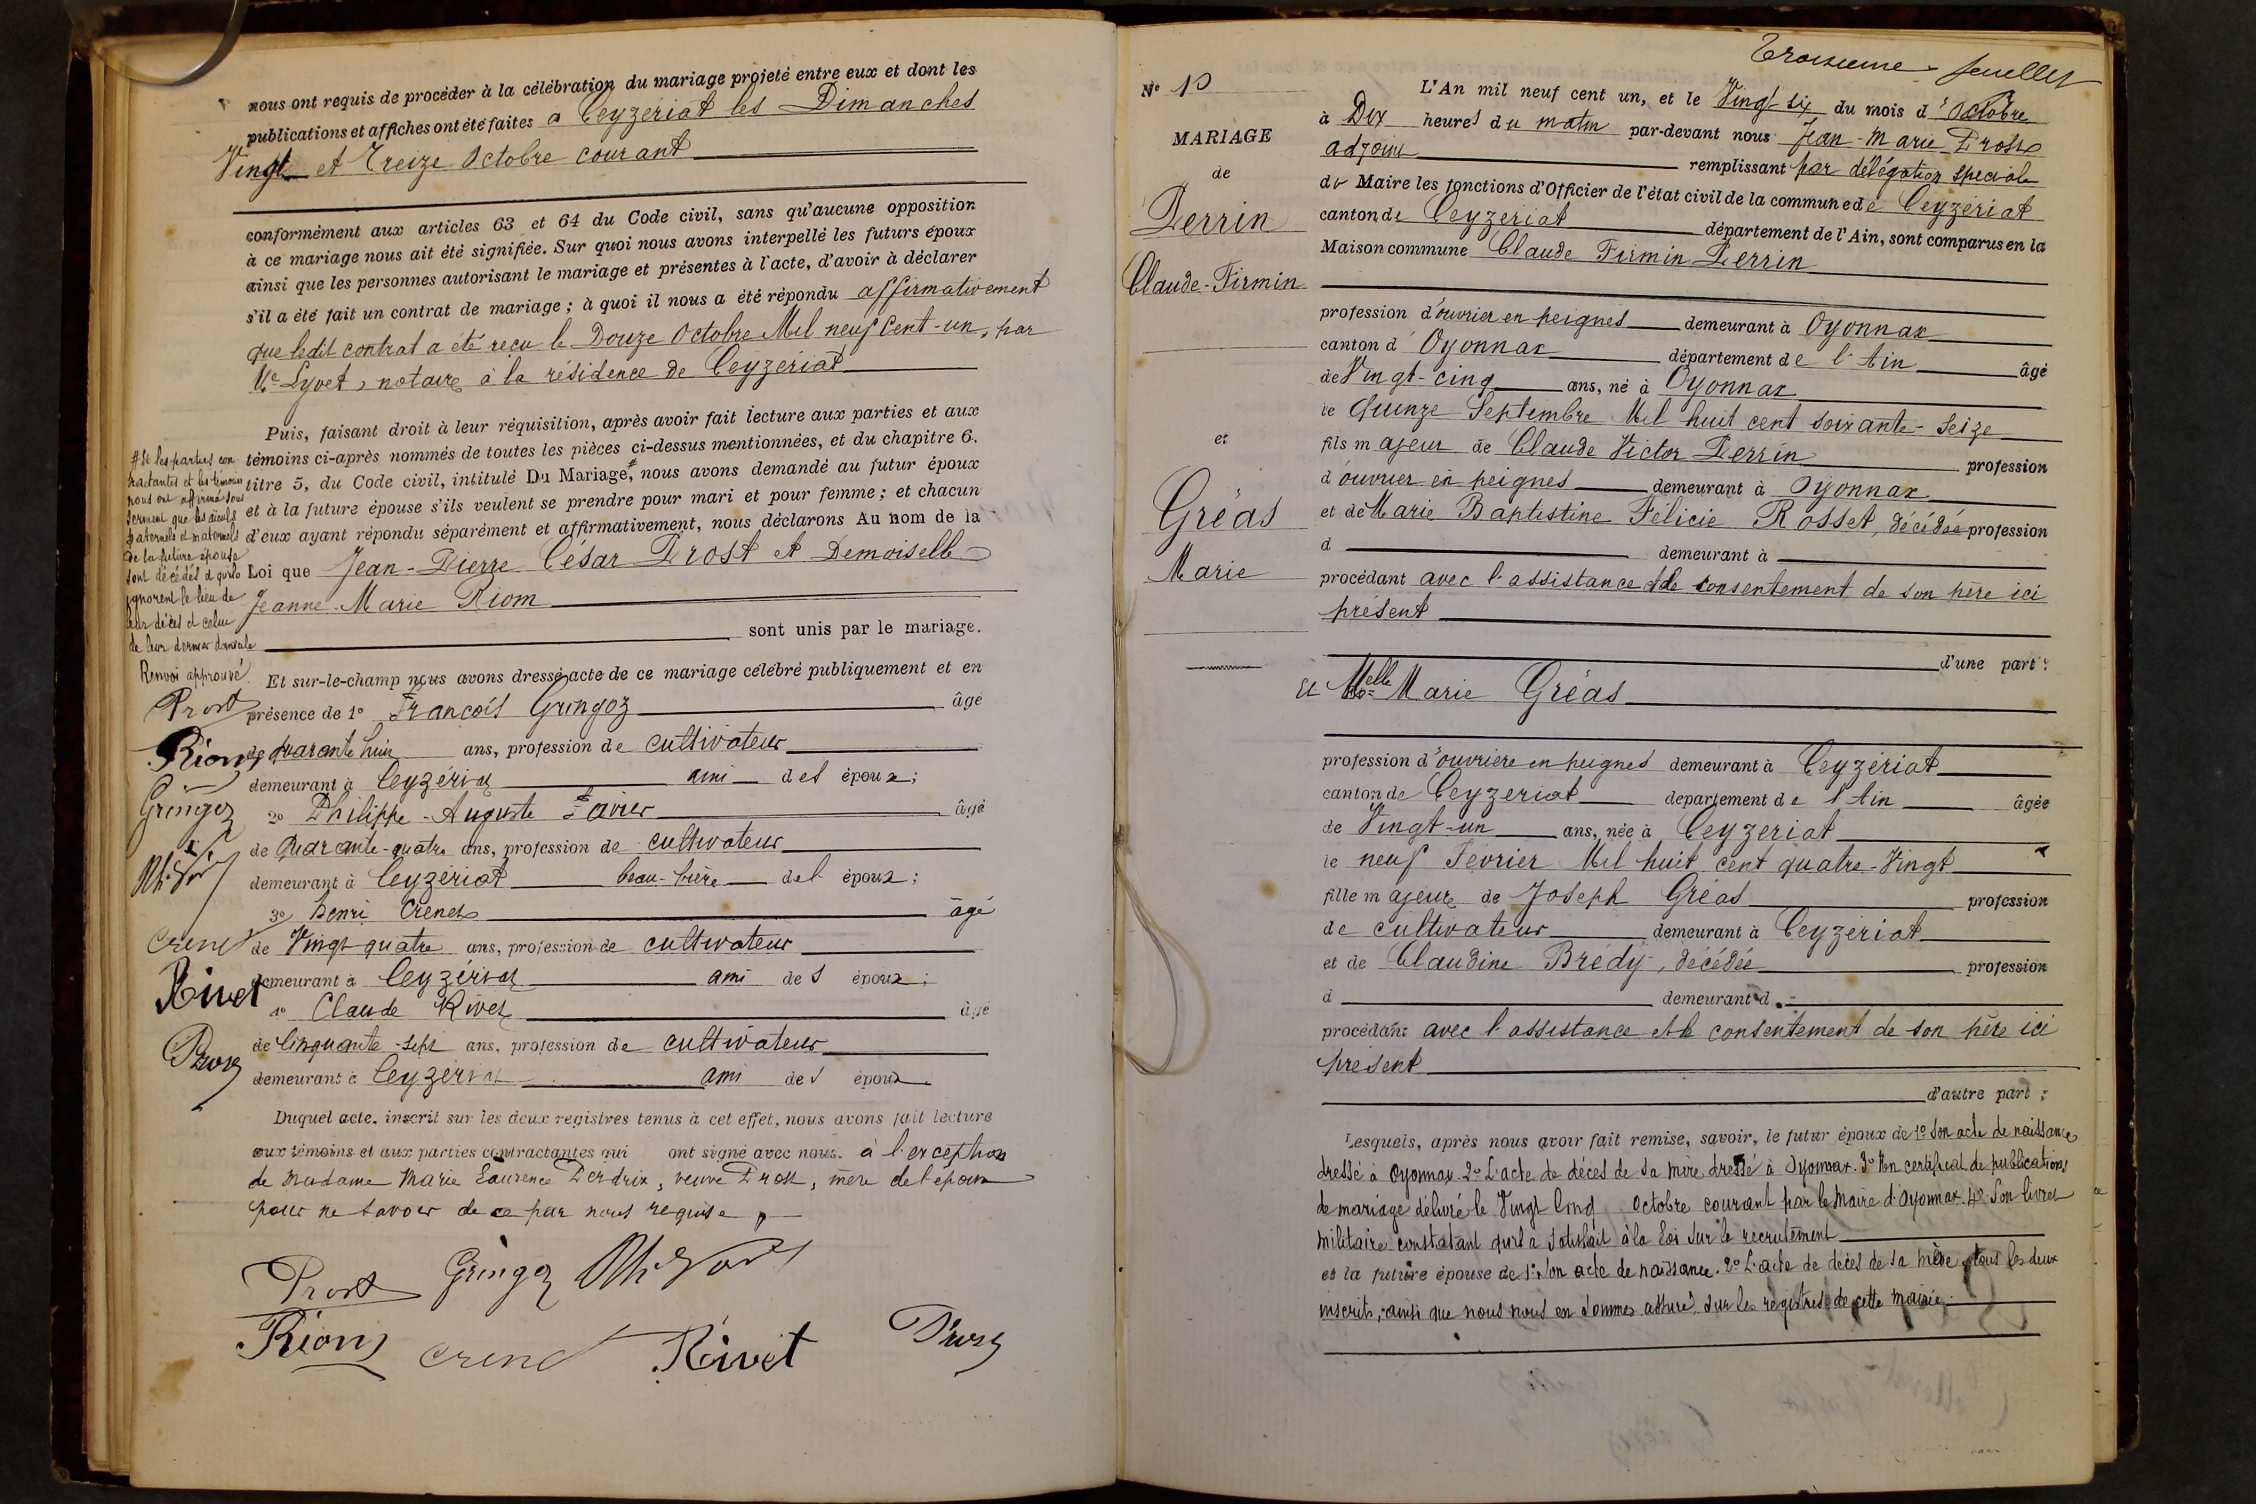 nous ont requis de procéder à la célébration du mariage projeté entre eux et dont les
publications et affiches ont été faites à Ceyzériat les Dimanches
Vingt et Treize Octobre courant
conformément aux articles 63 et 64 du Code civil, sans qu'aucune opposition
à ce mariage nous ait été signifiée. Sur quoi nous avons interpellé les futurs époux
ainsi que les personnes autorisant le mariage et présentes à l'acte, d'avoir à déclarer
s'il a été fait un contrat de mariage ; à quoi il nous a été répondu affirmativement
que ledit contrat a été reçu le Douze Octobre Mil neuf Cent-un, par
Me Lyvet, notaire à la résidence de Ceyzériat
Puis, faisant droit à leur réquisition, après avoir fait lecture aux parties et aux
témoins ci-après nommés de toutes les pièces ci-dessus mentionnées, et du chapitre 6.
titre 5, du Code civil, intitulé Du Mariage,# nous avons demandé au futur époux
et à la future épouse s'ils veulent se prendre pour mari et pour femme ; et chacun
d'eux ayant répondu séparément et affirmativement, nous déclarons Au nom de la
Loi que Jean-Pierre César Prost et Demoiselle
Jeanne-Marie Riom
sont unis par le mariage.
# Et les parties con
tractantes et les témoins
nous ont affirmé sous
serment que les aïeuls
paternels et maternels
de la future épouse
sont décédés et qu'ils
ignorent le lieu de
leur décès et celui
de leur dernier domicile
Renvoi approuvé
Prost
Riom
Gringoz
Crenet
Rivet
Prost
Et sur-le-champ nous avons dressé acte de ce mariage célébré publiquement et en
présence de 1° François Gringoz âgé
de quarante huit ans, profession de cultivateur
demeurant à Ceyzériat ami des époux ;
2° Philippe-Auguste âgé
de Quarante-quatre ans, profession de cultivateur
demeurant à Ceyzériat beau-frère de l' époux ;
3° henri Crenet âgé
de Vingt-quatre ans, profession de cultivateur
demeurant à Ceyzériat ami des époux ;
4° Claude Rivet âgé
de Cinquante-sept ans, profession de cultivateur
demeurant à Ceyzériat ami des époux
Duquel acte, inscrit sur les deux registres tenus à cet effet, nous avons fait lecture
aux témoins et aux parties contractantes qui ont signé avec nous. à l'exception
de Madame Marie Laurence Perdrix, veuve Prost, mère de l'époux
pour ne savoir de ce par nous requise
Prost Gringoz
Riom Crenet Rivet Prost
Troisième feuillet
N° 10
MARIAGE
de
Perrin
Claude-Firmin
et
Gréas
Marie
L'An mil neuf cent un, et le Vingt-six du mois d'Octobre
à Dix heures du matin par-devant nous Jean-Marie Prost
adjoint remplissant par délégation spéciale
du Maire les fonctions d'Officier de l'état civil de la commune de Ceyzériat
canton de Ceyzériat département de l'Ain, sont comparus en la
Maison commune Claude Firmin Perrin
profession d'ouvrier en peignes demeurant à Oyonnax
canton d'Oyonnax département de l'Ain âgé
de Vingt-cinq ans, né à Oyonnax
le Quinze Septembre Mil huit cent soixante-seize
fils majeur de Claude Victor Perrin profession
d'ouvrier en peignes demeurant à Oyonnax
et de Marie Baptistine Félicie Rosset, décédée profession
d demeurant à
procédant avec l'assistance et le consentement de son père ici
présent
d'une part ;
Et Melle Marie Gréas
profession d'ouvrière en peignes demeurant à Ceyzériat
canton de Ceyzériat département de l'Ain âgée
de Vingt-un ans, née à Ceyzériat
le neuf Février Mil huit cent quatre-Vingt
fille majeure de Joseph Gréas profession
de cultivateur demeurant à Ceyzériat
et de Claudine Brédy, décédée profession
d demeurant à
procédant avec l'assistance et le consentement de son père ici
présent
d'autre part ;
Lesquels, après nous avoir fait remise, savoir, le futur époux de 1° Son acte de naissance
dressé à Oyonnax. 2° L'acte de décès de sa mère dressé à Oyonnax. 3° Un certificat de publications
de mariage délivré le Vingt Cinq Octobre courant par le Maire d'Oyonnax. 4° Son livret
militaire constatant qu'il a satisfait à la loi sur le recrutement
et la future épouse de 1° Son acte de naissance. 2° L'acte de décès de sa mère tous les deux
inscrits, ainsi que nous nous en sommes assuré, sur les registres de cette mairie.